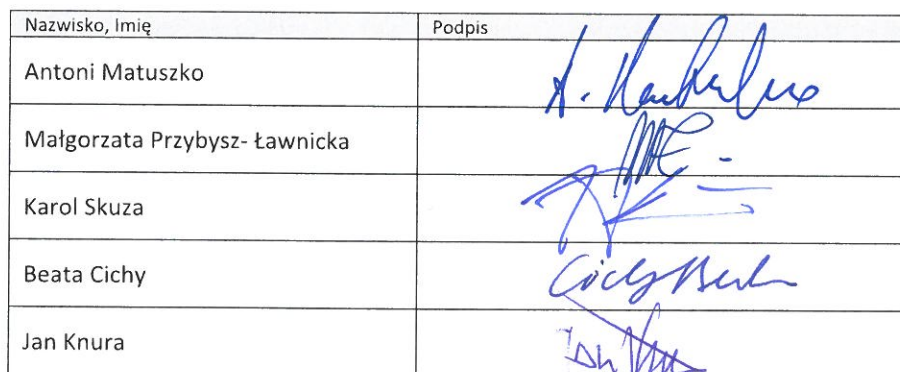 Nazwisko, Imię Podpis
Antoni Matuszko
Małgorzata Przybysz- Ławnicka
Karol Skuza
Beata Cichy Cichy Beata
Jan Knura Jan